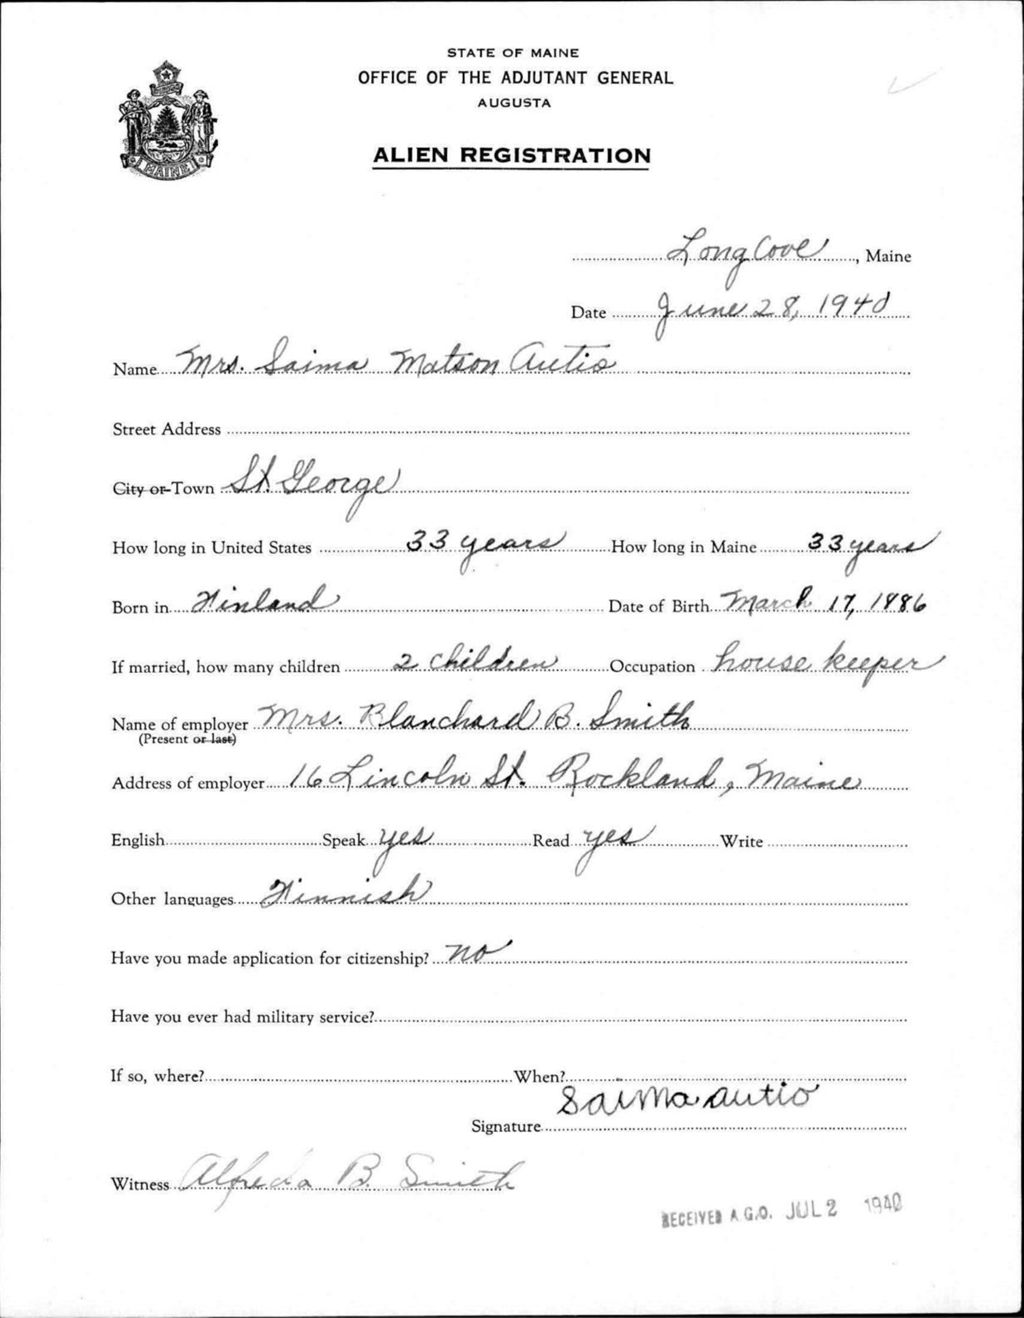 STATE OF MAINE
OFFICE OF THE ADJUTANT GENERAL
AUGUSTA
ALIEN REGISTRATION
MAINE
Long Cove, Maine
Date June 28, 1940
Name Mrs. Saima Matson Autio
Street Address
City or Town St. George
How long in United States 33 years How long in Maine 33 years
Born in Finland Date of Birth March 17, 1886
If married, how many children 2 children Occupation house keeper
Name of employer Mrs. Blanchard B. Smith
(Present or last)
Address of employer 16 Lincoln St. Rockland, Maine
English Speak yes Read yes Write
Other languages Finnish
Have you made application for citizenship? no
Have you ever had military service?
If so, where? When?
Signature Saima autio
Witness Alfreda B. Smith
RECEIVED A.G.O. JUL 2 1940